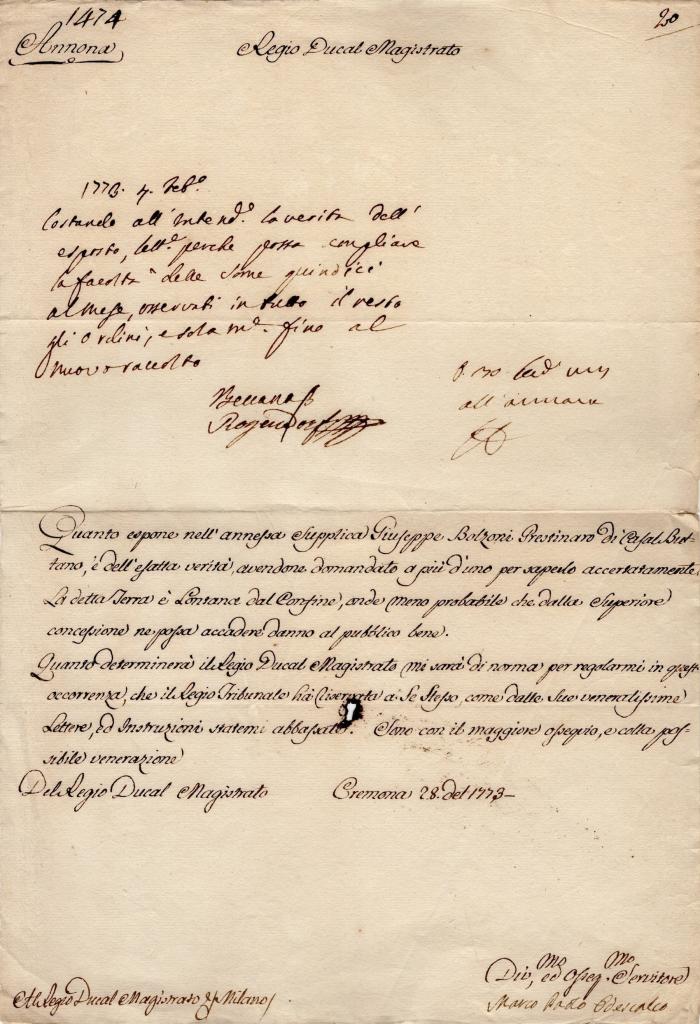 1474
20
Annona
Regio Ducal Magistrato
1773. 4. Feb.º
Costando all'Intend.e la verità dell'
esposto, perche possa
la facoltà delle some quindici
al mese, osservati in tutto il resto
gli Ordini, e fino al
nuovo raccolto
all'
Quanto espone nell'annessa Supplica Giuseppe Bolzoni Prestinaro di Casal But-
tano, è dell'esatta verità, avendone domandato a più d'uno per saperlo accertatamente.
La detta Terra è Lontana dal Confine, onde meno probabile che dalla Superiore
concessione ne possa accadere danno al pubblico bene.
Quanto determinerà il Regio Ducal Magistrato mi sarà di norma per regolarmi in quest'
occorrenza, che il Regio Tribunale ha riservata a Se Stesso, come dalle Sue veneratissime
Lettere, ed Instruzioni statemi abbassate. Sono con il maggiore ossequio, e colla pos-
sibile venerazione
Del Regio Ducal Magistrato
Cremona 28. del 1773
Div.mo, ed Osseq.mo Servitore
Marco Odescalco
Al Regio Ducal Magistrato Milano